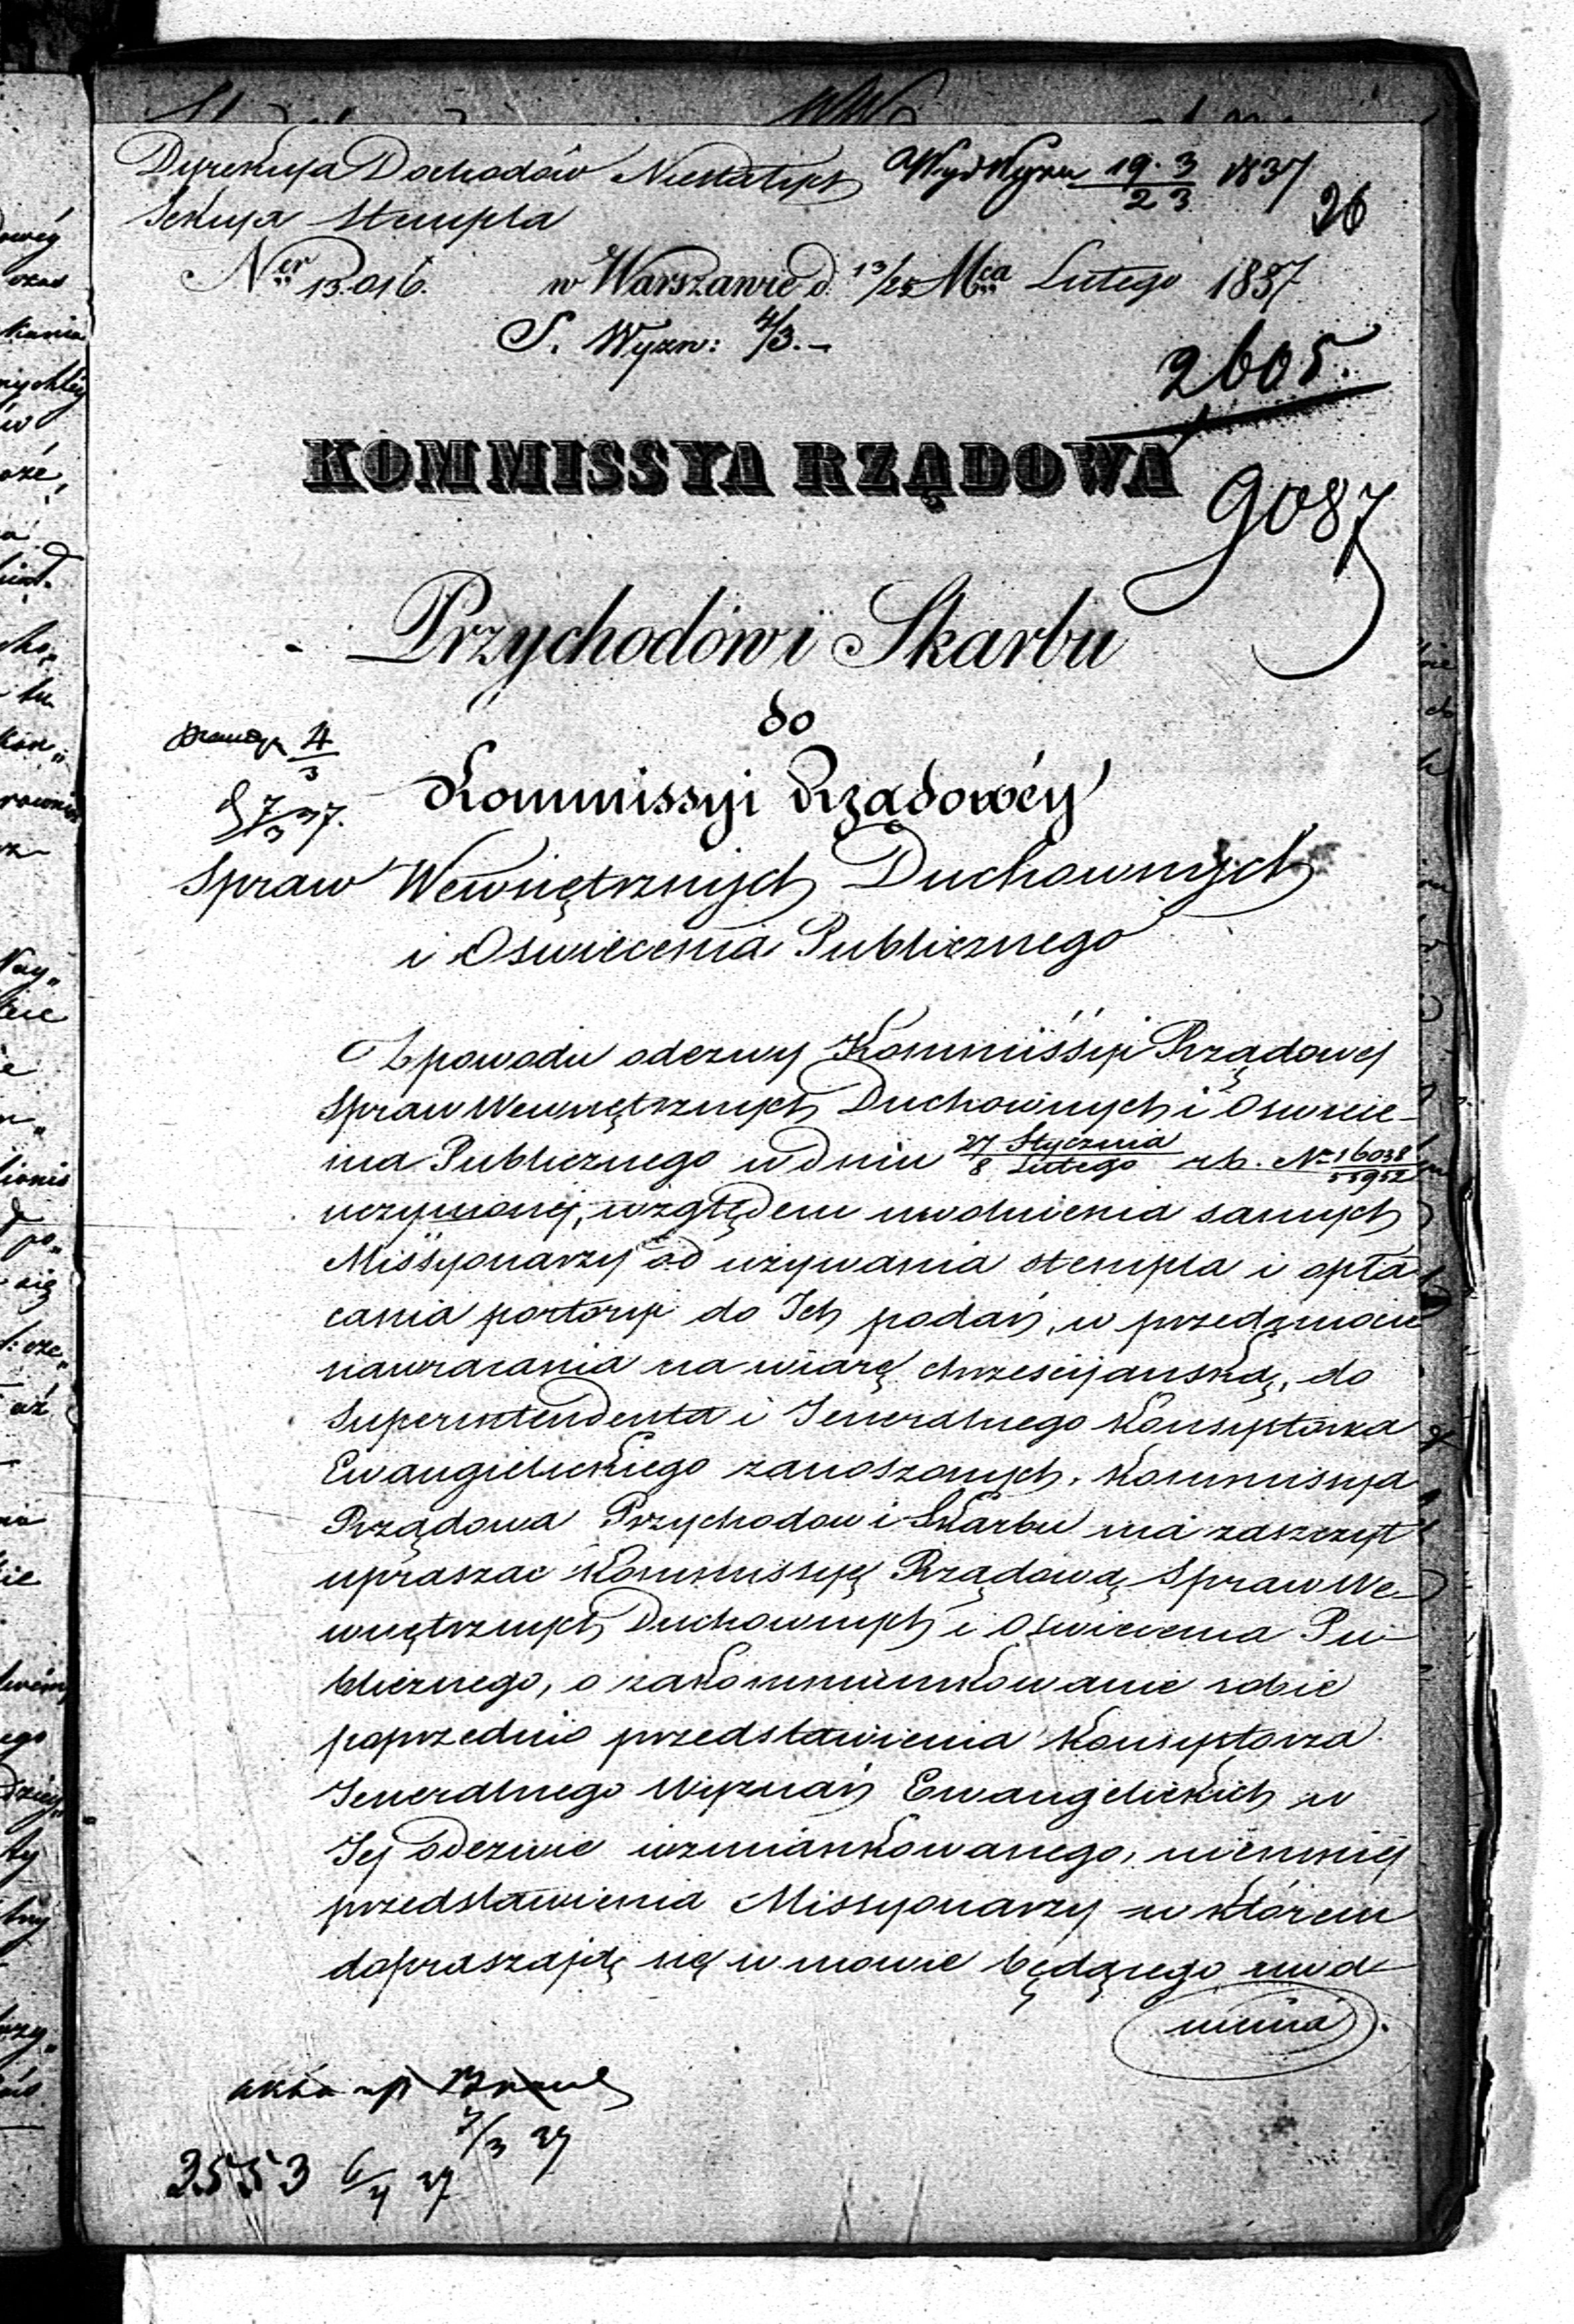 Dyrekcya Dochodów Niestałych
19.3 1837
23
Sekcya Stempla
26
Ner 13.016. w Warszawie d. 13/25 Mca Lutego 1837
S. Wyzn: 4/3.-
2605.
KOMMISSYA RZĄDOWA
9087
Przychodów i Skarbu
do
4/3
Kommissyi Rządowéy
7/3 37.
Spraw Wewnętrznych Duchownych
i Oswiecenia Publicznego
Z powodu odezwy Kommissyi Rządowej
Spraw Wewnętrznych Duchownych i Oswiece-
nia Publicznego w dniu 27 Stycznia / 8 Lutego rb. Nr 16038/55952
uczynionej, względem uwolnienia samych
Missyonarzy od używania stempla i opła-
cania portoryi do Ich podań, w przedmiocie
nawracania na wiarę chrzescijanską, do
Superintendenta i Jeneralnego Konsystorza
Ewangielickiego zanoszonych, Kommissya
Rządowa Przychodow i Skarbu ma zaszczyt
upraszac Kommissyę Rządową Spraw We-
wnętrznych Duchownych i Oswiecenia Pu-
blicznego, o zakommunikowanie sobie
poprzednio przedstawienia Konsystorza
Jeneralnego Wyznań Ewangelickich w
Jej odezwie wzmiankowanego, niemniej
przedstawienia Missyonarzy w którem
dopraszają się w mowie będącego uwol-
nienia.
7/3 37
3553 6/4 37